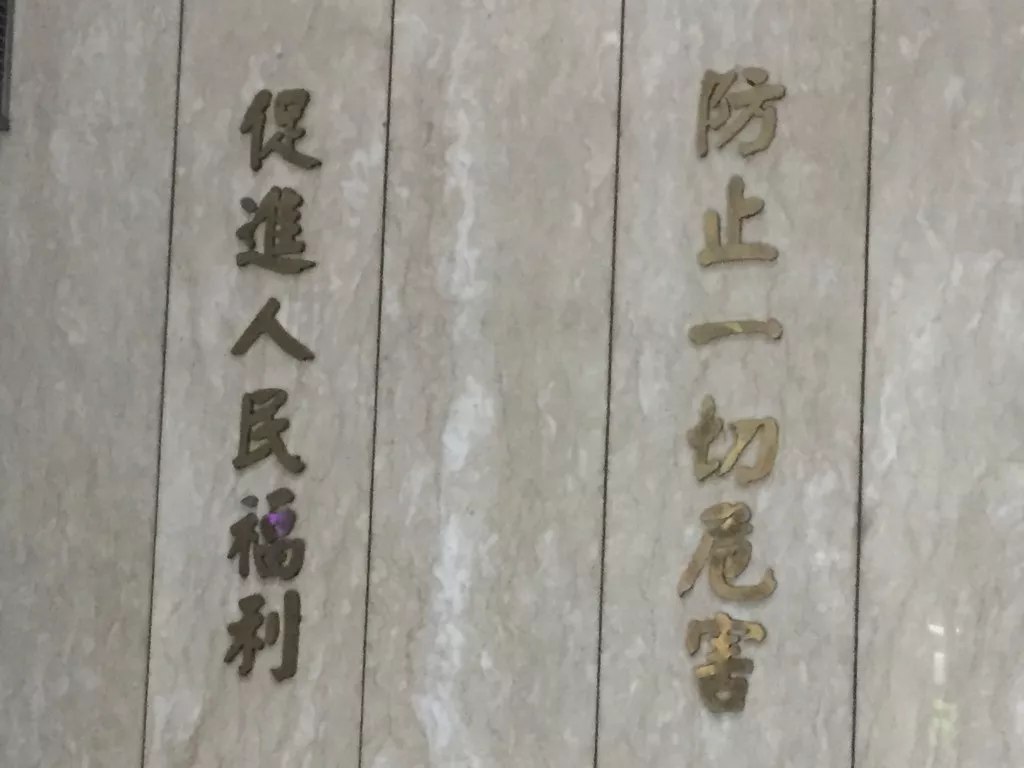 防止一切危害
促進人民福利